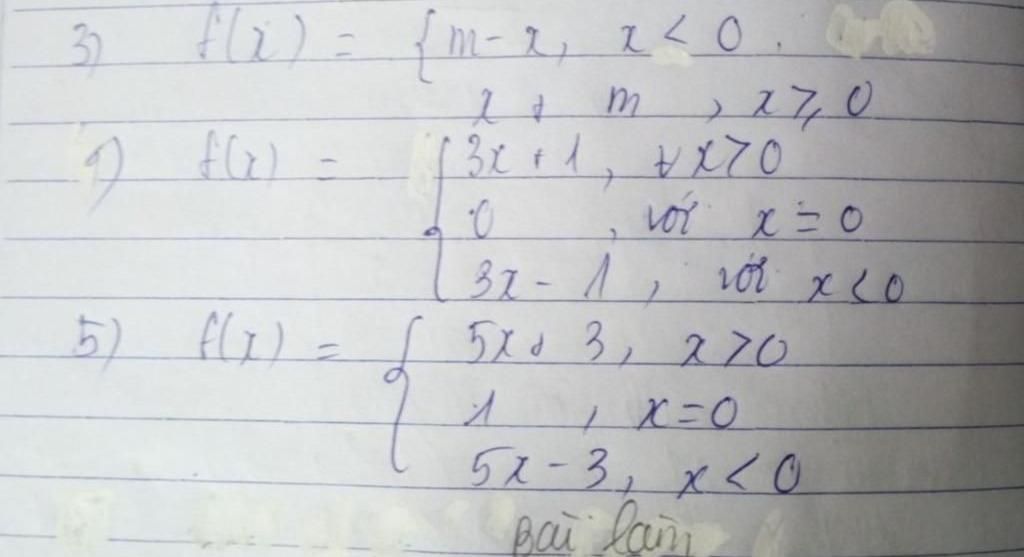 3) f(x) = { m - x, x < 0.
x + m , x ≥ 0
4) f(x) = { 3x + 1, ∀x > 0
0 , với x = 0
3x - 1, với x < 0
5) f(x) = { 5x + 3, x > 0
1 , x = 0
5x - 3, x < 0
Bài làm